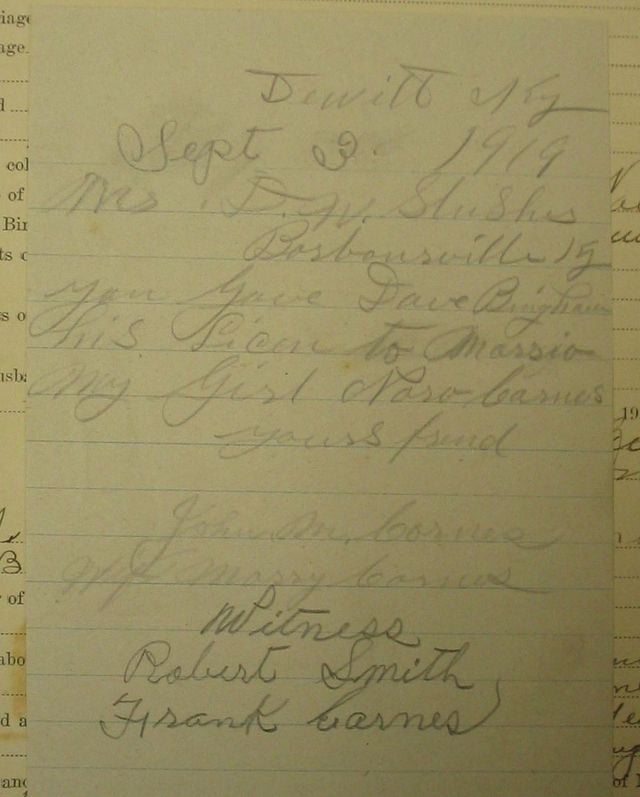 Dewitt Ky
Sept 3. 1919
Mr. D. W. Slusher
Barbourville Ky
you Gave Dave Bingham
his Licen to Marrio
My Girl Nora Carnes
yours frend
John M. Carnes
Marry Carnes
Witness
Robert Smith
Frank Carnes